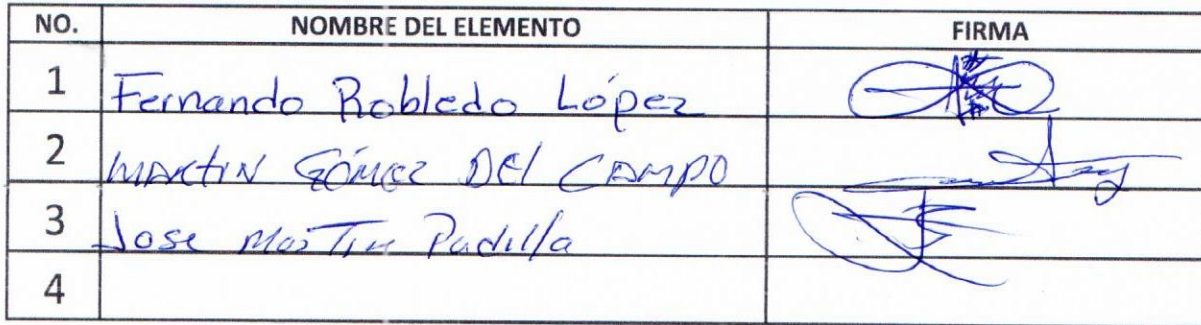 NO. NOMBRE DEL ELEMENTO FIRMA
1 Fernando Robledo López
2 MARTIN GÓMEZ DEl CAMPO
3 Jose Martin Padilla
4